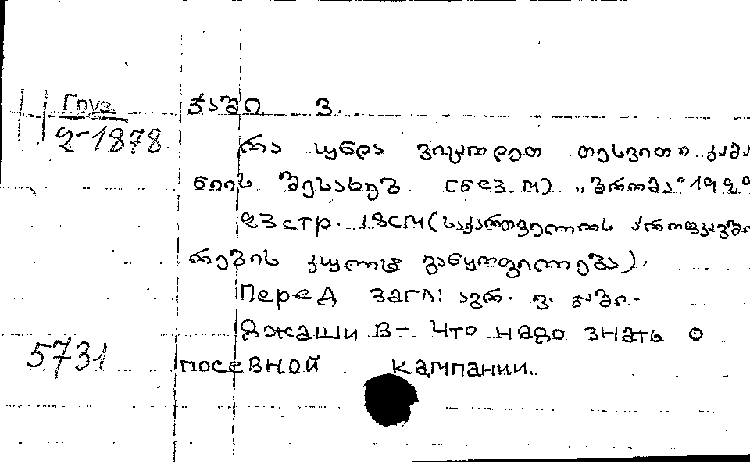 Груз
2-1878
ჯაში ვ.
რა უნდა ვიცოდეთ თესვითი კამპა
ნიის შესახებ. [ნ.ც.ვ.м) „შრომა" 192
23 стр. 18см (საქართველოს პროფკავში
რების კულტ განყოფილება).
Перед загл: ავტ. ვ. ჯაში.
Джаши В- Что надо знать о
5731
посевной кампании.